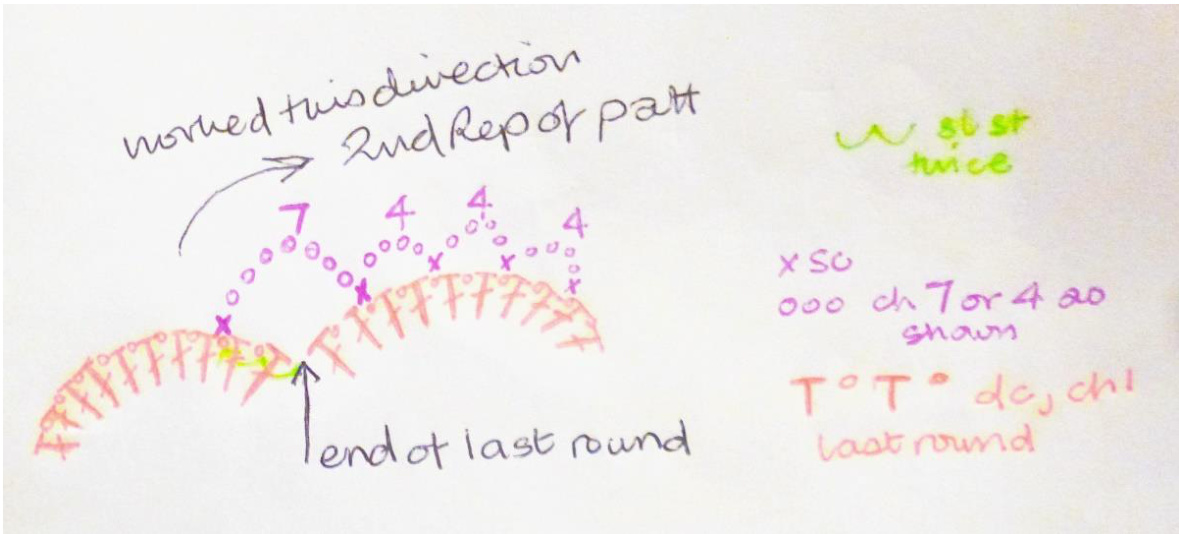 worked this direction
2nd Rep of patt
7 4 4 4
end of last round
sl st
twice
x sc
ooo ch 7 or 4 as
shown
T o T o dc, ch1
last round